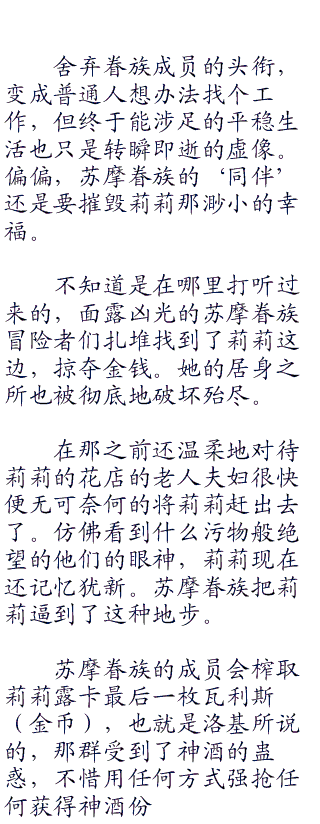 舍弃眷族成员的头衔，
变成普通人想办法找个工
作，但终于能涉足的平稳生
活也只是转瞬即逝的虚像。
偏偏，苏摩眷族的‘同伴’
还是要摧毁莉莉那渺小的幸
福。
不知道是在哪里打听过
来的，面露凶光的苏摩眷族
冒险者们扎堆找到了莉莉这
边，掠夺金钱。她的居身之
所也被彻底地破坏殆尽。
在那之前还温柔地对待
莉莉的花店的老人夫妇很快
便无可奈何的将莉莉赶出去
了。仿佛看到什么污物般绝
望的他们的眼神，莉莉现在
还记忆犹新。苏摩眷族把莉
莉逼到了这种地步。
苏摩眷族的成员会榨取
莉莉露卡最后一枚瓦利斯
（金币），也就是洛基所说
的，那群受到了神酒的蛊
惑，不惜用任何方式强抢任
何获得神酒份